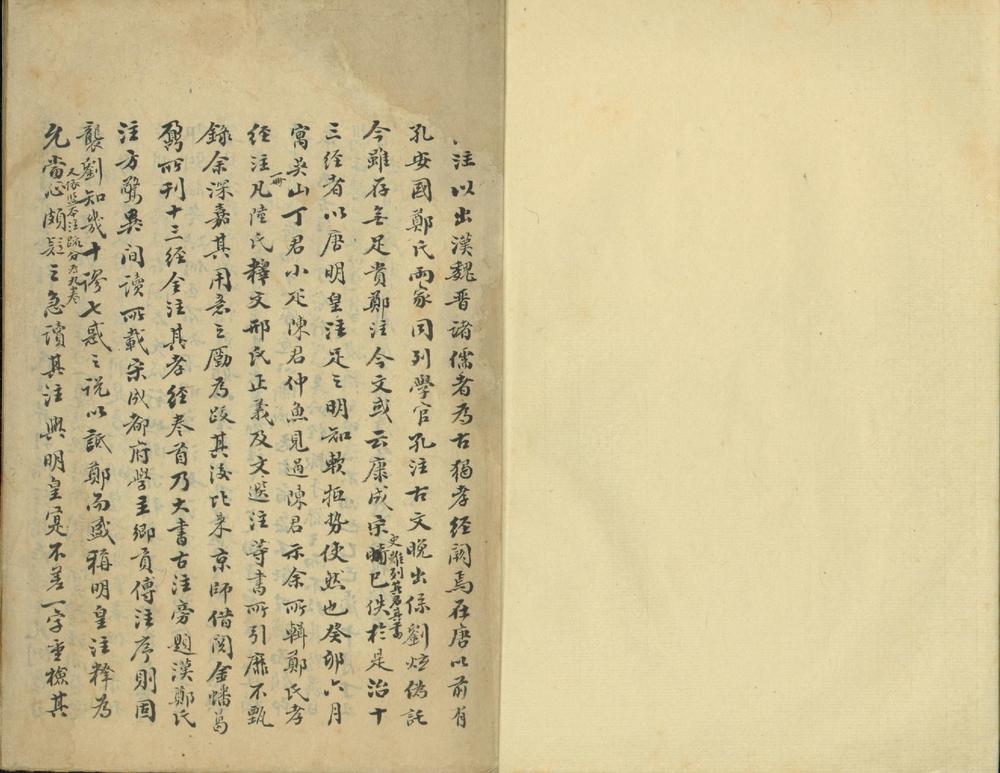 注以出漢魏晋诸儒者為古獨孝经阙焉在唐以前有
孔安國鄭氏兩家同列學官孔注古文晚出係劉炫偽託
今雖存無足貴鄭注今文或云康成宋時已佚於是治十
史雖列其名其書
三经者以唐明皇注足之明知軟拒势使然也癸卯六月
寓吴山丁君小疋陳君仲魚見過陳君示余所輯鄭氏孝
经注凡陸氏释文邢氏正義及文选注等書所引靡不甄
一冊
錄余深嘉其用意之勤為跋其後比来京師借阅金蟠葛
鼐所刊十三经全注其孝经卷首乃大書古注旁題漢鄭氏
注方驚異间读所載宋成都府學主鄉貢傅注序則固
襲劉知幾十谬七惑之说以詆鄭而盛稱明皇注释為
允當心頗疑之急读其注與明皇寔不差一字重檢其
又依監本注疏分为九卷